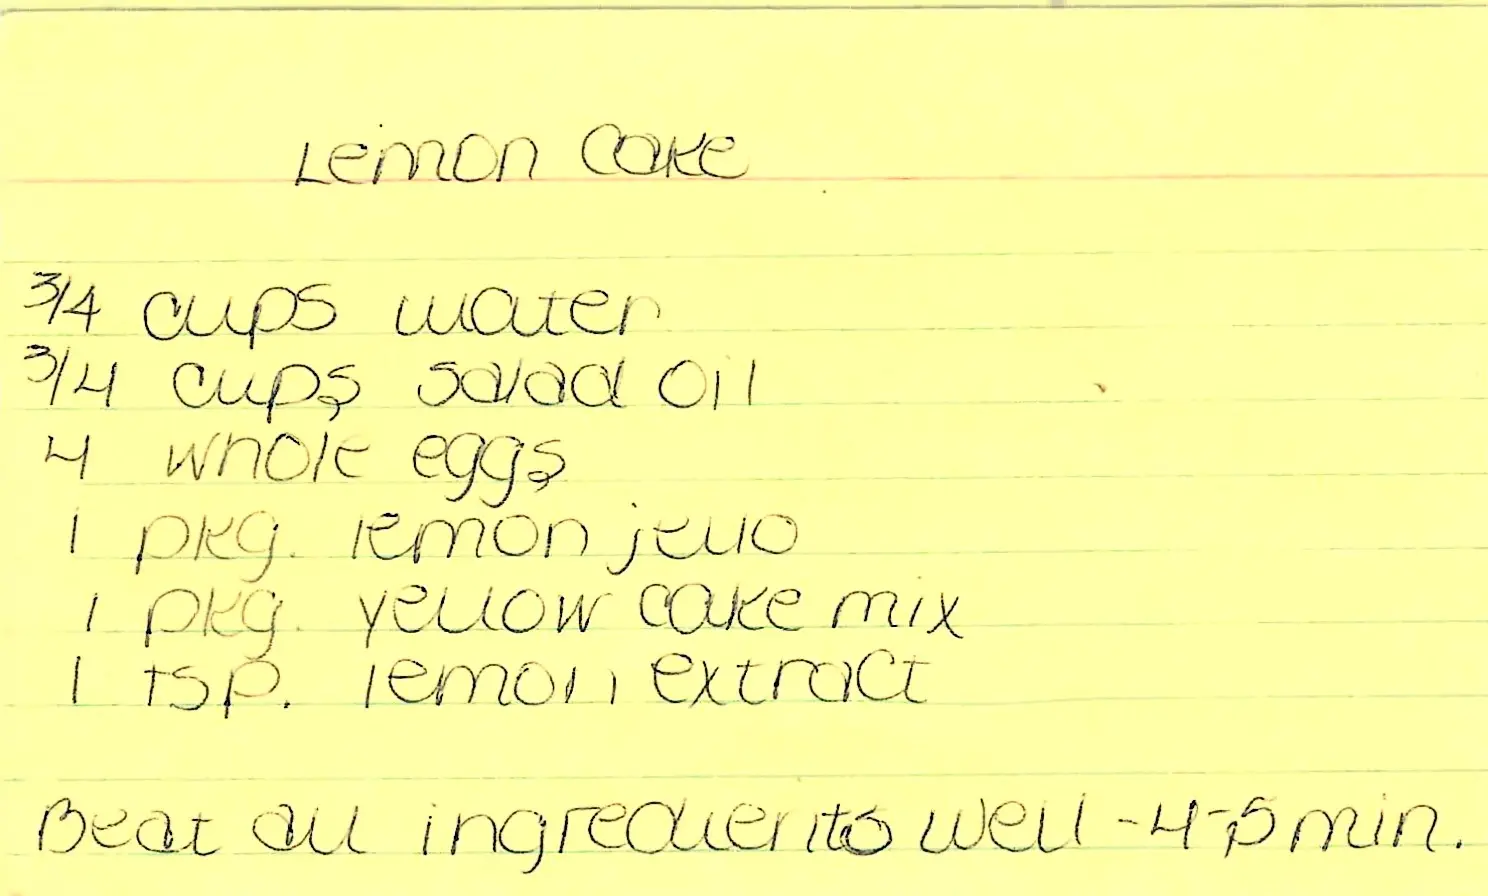 Lemon Cake
3/4 cups water
3/4 cups salad oil
4 whole eggs
1 pkg. lemon jello
1 pkg. yellow cake mix
1 tsp. lemon extract
Beat all ingredients well - 4-5 min.